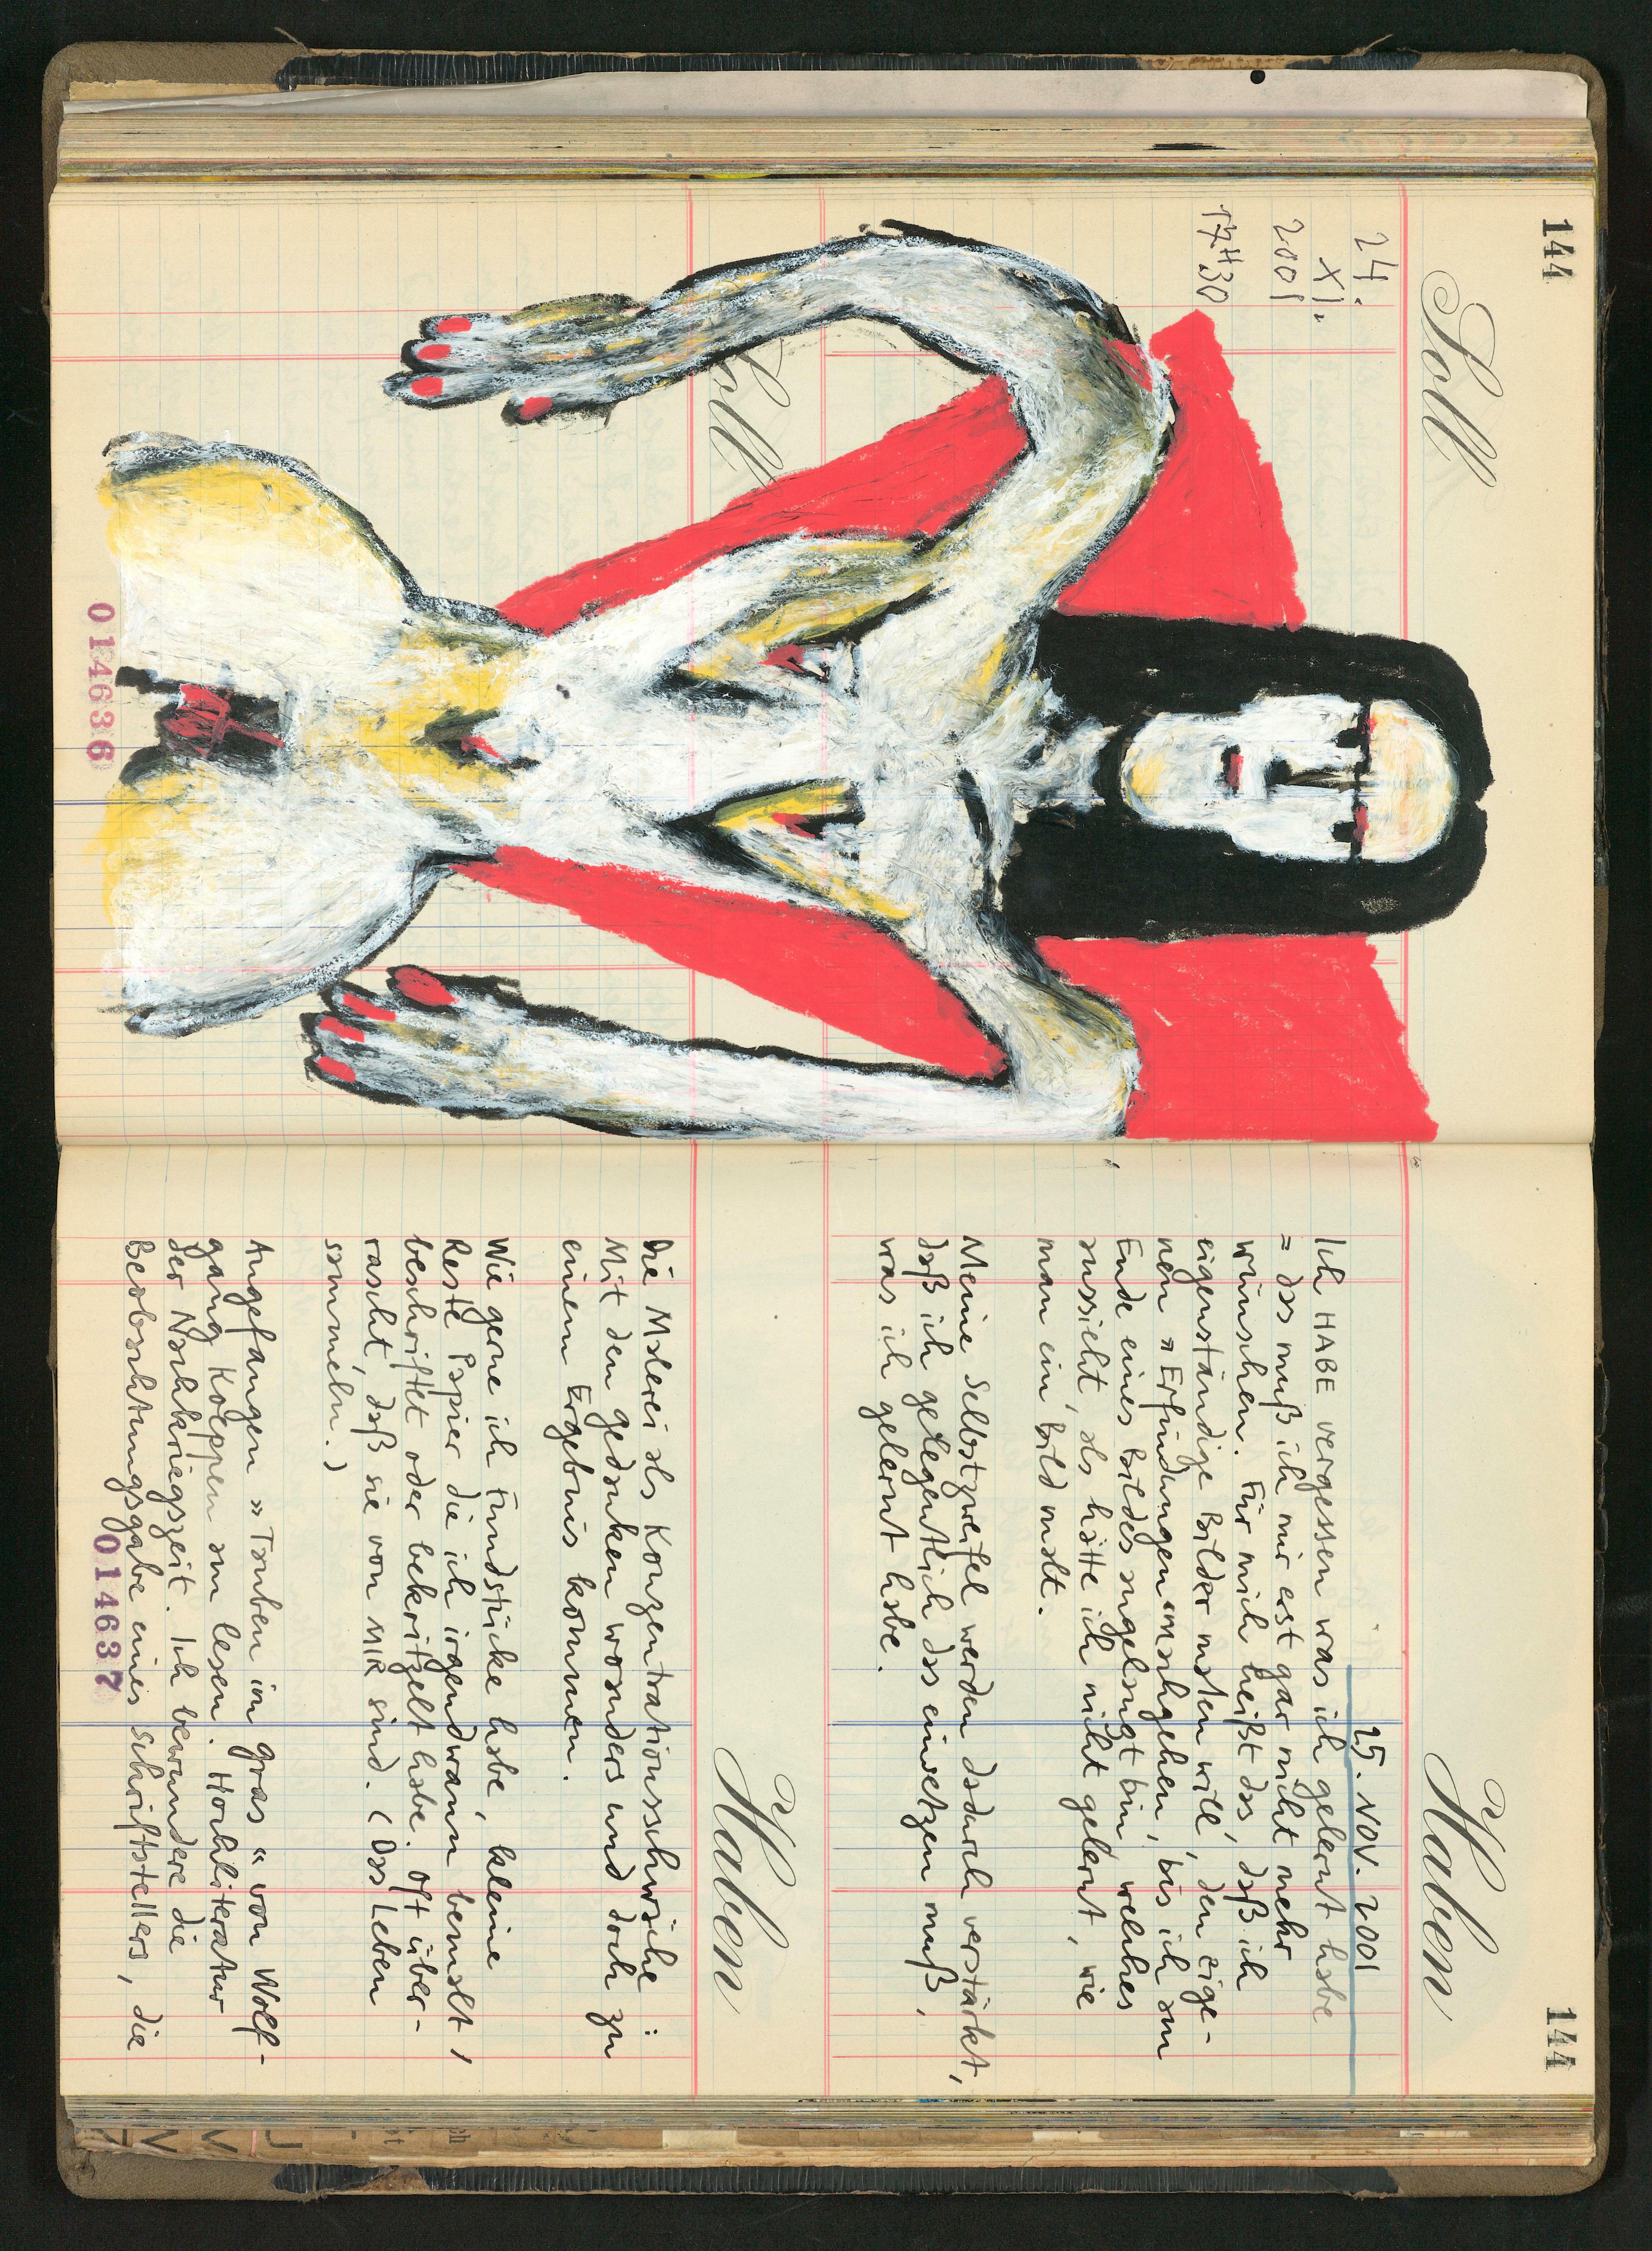 144
Soll
24.
XI.
2001
17H30
Soll
014636
144
Haben
25. NOV. 2001
Ich HABE vergessen was ich gelernt habe
= das muß ich mir erst gar nicht mehr
wünschen. Für mich heißt das, daß ich
eigenständige Bilder malen will, den eige-
nen »Erfindungen nachgehen, bis ich am
Ende eines Bildes angelangt bin, welches
aussieht, als hätte ich nicht gelernt, wie
man ein Bild malt.
Meine Selbstzweifel werden dadurch verstärkt,
daß ich gelegentlich das einsetzen muß,
was ich gelernt habe.
Haben
Die Malerei als Konzentrationsschwäche:
Mit den Gedanken woanders und doch zu
einem Ergebnis kommen.
Wie gerne ich Fundstücke habe, kleine
Reste Papier die ich irgendwann bemalt,
beschriftet oder bekritzelt habe. Oft über-
rascht, daß sie von MIR sind. (Das Leben
sammeln.)
Angefangen »Tauben im Gras« von Wolf-
gang Koeppen am lesen. Hochliteratur
der Nachkriegszeit. Ich bewundere die
Beobachtungsgabe eines Schriftstellers, die
014637